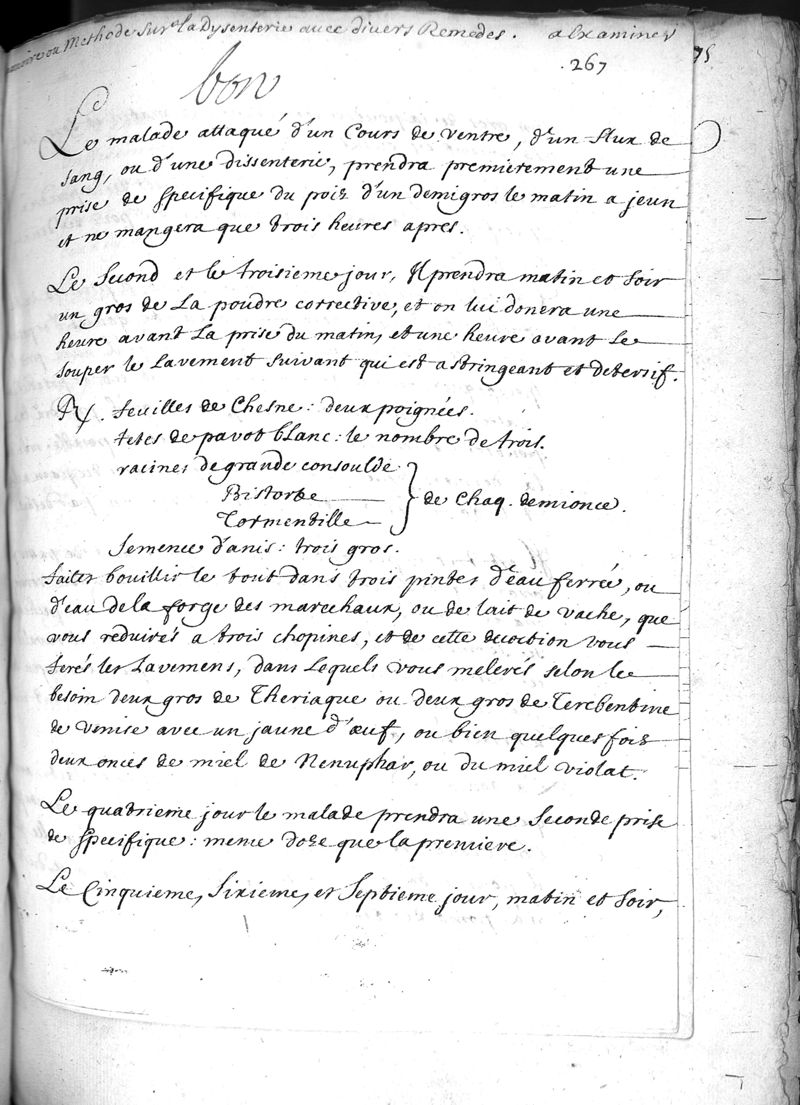 moire ou Methode Sur la Dysenterie avec divers Remedes. a Examiner
.267
75
bon
Le malade attaqué d'un Cours de ventre, d'un flux de
sang, ou d'une dissenterie, prendra premierement une
prise de specifique du poiz d'un demigros le matin a jeun
et ne mangera que trois heures apres.
Le second et le troisieme jour, Il prendra matin et soir
un gros de La poudre corrective, et on lui donera une
heure avant La prise du matin, et une heure avant le
souper le Lavement suivant qui est astringeant et detersif.
R/. feuilles de Chesne : deux poignées.
tetes de pavot blanc : le nombre de trois.
racines de grande consoulde
Bistorte
Tormentille
de Chaq. demionce.
semence d'anis : trois gros.
faites bouillir le tout dans trois pintes d'eau ferrée, ou
d'eau de la forge des marechaux, ou de lait de vache, que
vous reduirés a trois chopines, et de cette decoction vous
ferés les Lavemens, dans Lequels vous melerés selon le
besoin deux gros de Theriaque ou deux gros de Terebentine
de Venise avec un jaune d'œuf, ou bien quelques foiz
deux onces de miel de Nenuphar, ou du miel violat.
Le quatrieme jour le malade prendra une seconde prise
de specifique : meme doze que la premiere.
Le Cinquieme, Sixieme, et Septieme jour, matin et soir,